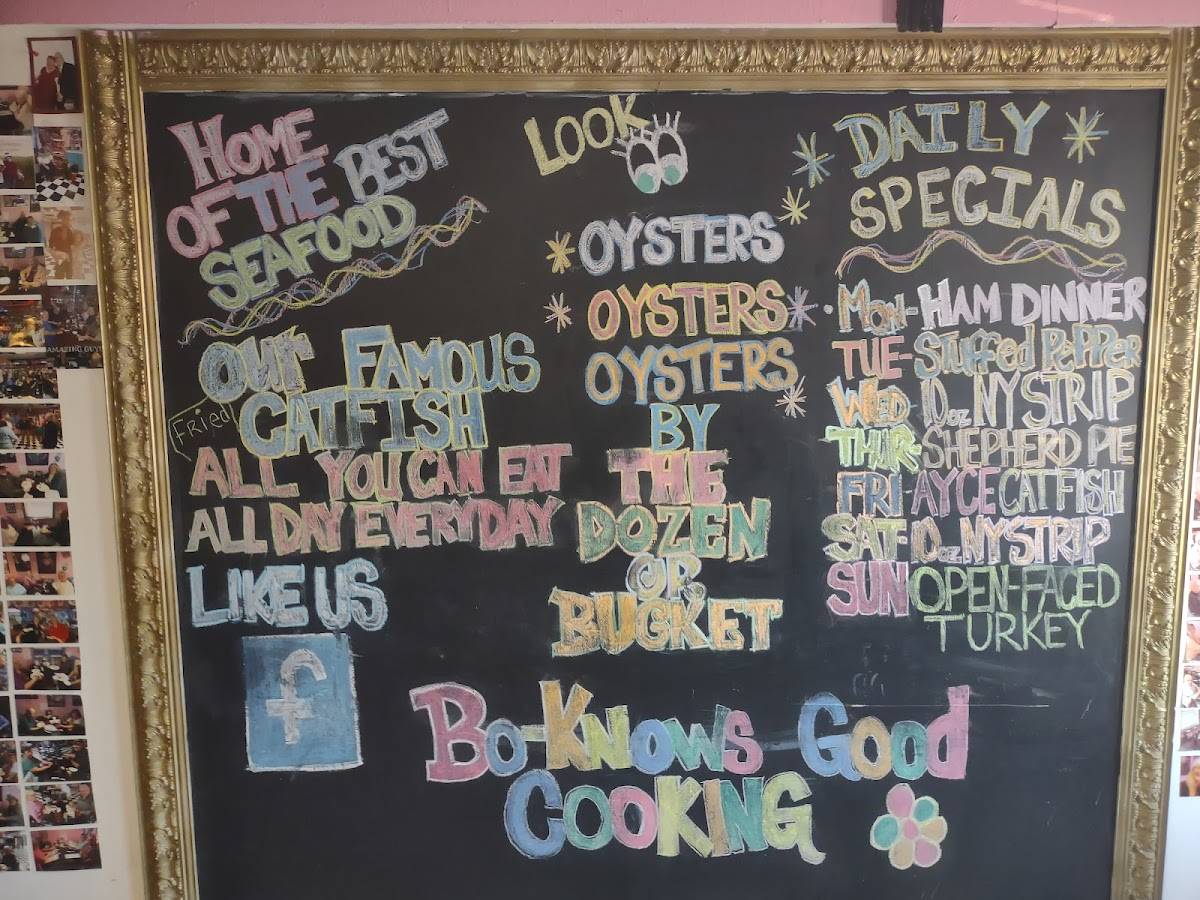 HOME
OF THE BEST
SEAFOOD
OUR FAMOUS
Fried
CATFISH
ALL YOU CAN EAT
ALL DAY EVERYDAY
LIKE US
f
LOOK
OYSTERS
OYSTERS
OYSTERS
BY
THE
DOZEN
OR
BUCKET
DAILY
SPECIALS
MON-HAM DINNER
TUE-Stuffed PePPer
WED 10oz NY STRIP
THUR-SHEPHERD PIE
FRI-AYCE CATFISH
SAT-10oz NY STRIP
SUN OPEN-FACED
TURKEY
BO-KNOWS GOOD
COOKING
AMAZING GUY!